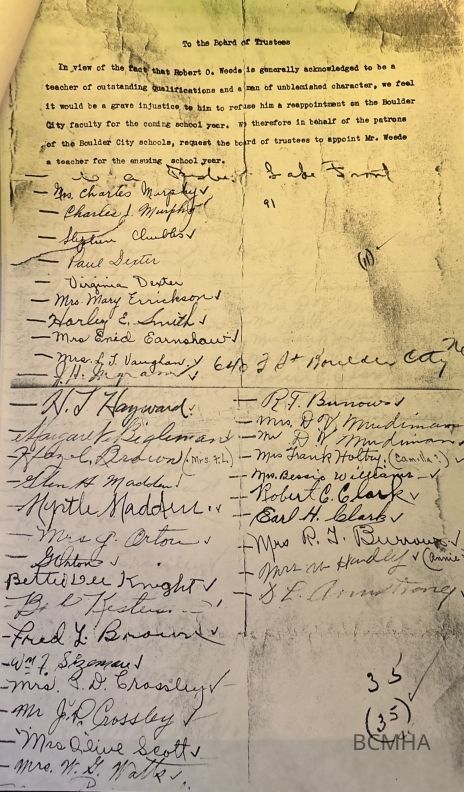 To the Board of Trustees
In view of the fact that Robert O. Weede is generally acknowledged to be a
teacher of outstanding qualifications and a man of unblemished character, we feel
it would be a grave injustice to him to refuse him a reappointment on the Boulder
City faculty for the coming school year. We therefore in behalf of the patrons
of the Boulder City schools, request the board of trustees to appoint Mr. Weede
a teacher for the ensuing school year.
Mrs Charles Murphy
Charles L. Murphy
91
Stephen Chubbs
Paul Dexter
(11)
Virginia Dexter
Mrs. Mary Errickson
Harley E. Smith
Mrs Enid Earnshaw
Mrs. L. T. Vaughan 640 I St Boulder City
H. T Hayward
Margaret Bigleman
Hazel Brown (Mrs. F.L.)
Glen H Madden
Myrtle Madden
Mrs G. Orton
G Orton
Bettie Lee Knight
Fred L. Brown
Wm J. Sizemore
Mrs. J. D. Crossley
Mr J. D. Crossley
Mrs Olive Scott
Mrs. W. G. Watts
R. T. Burrows
Mrs. D V Mudimann
Mr D V Mudimann
Mrs Frank Holtby (Camilla)
Mrs. Bessie Williams
Robert C. Clark
Earl H. Clark
Mrs R. T. Burrows
Mrs W Hardley (Annie
S E. Armstrong
35
(35)
BCMHA